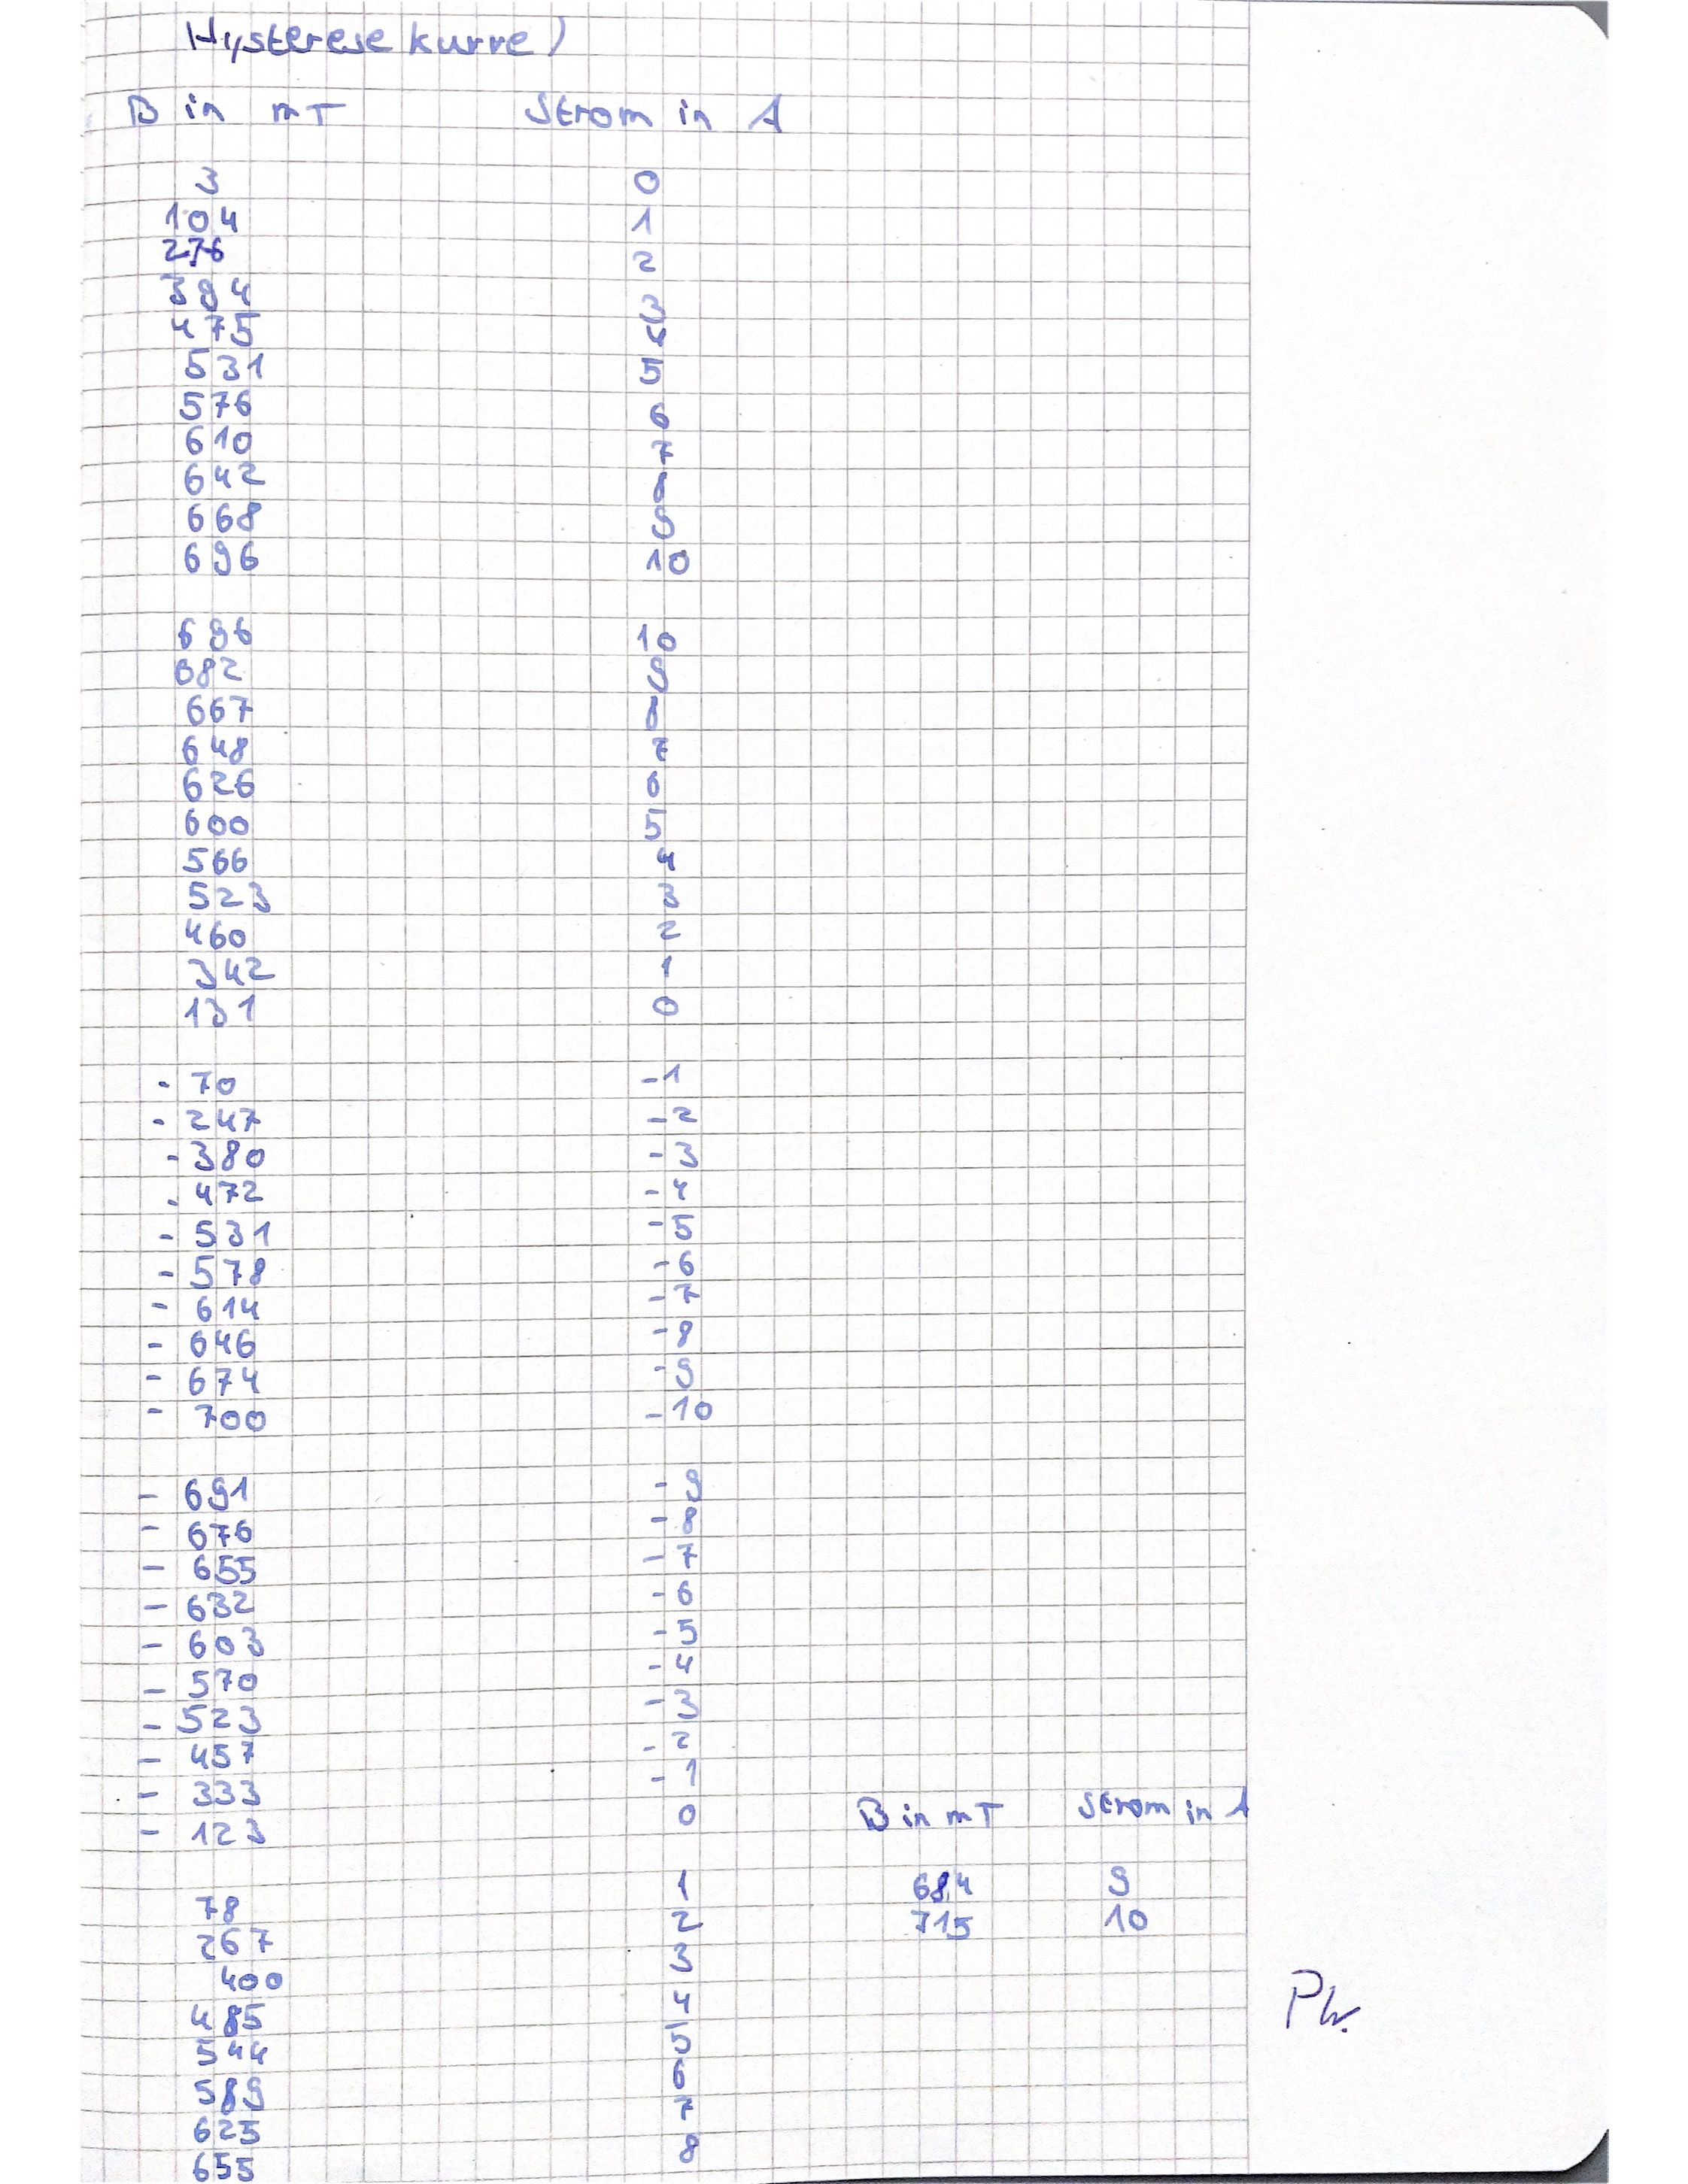 Hysteresekurve)
B in mT Strom in A
3 0
104 1
276 2
394 3
475 4
531 5
576 6
610 7
642 8
668 9
696 10
696 10
682 9
667 8
648 7
626 6
600 5
566 4
523 3
460 2
342 1
131 0
- 70 -1
- 247 -2
- 380 -3
- 472 -4
- 531 -5
- 578 -6
- 614 -7
- 646 -8
- 674 -9
- 700 -10
- 691 -9
- 676 -8
- 655 -7
- 632 -6
- 603 -5
- 570 -4
- 523 -3
- 457 -2
- 333 -1
- 123 0
78 1
267 2
400 3
485 4
544 5
589 6
625 7
655 8
B in mT Strom in A
684 9
715 10
PW.